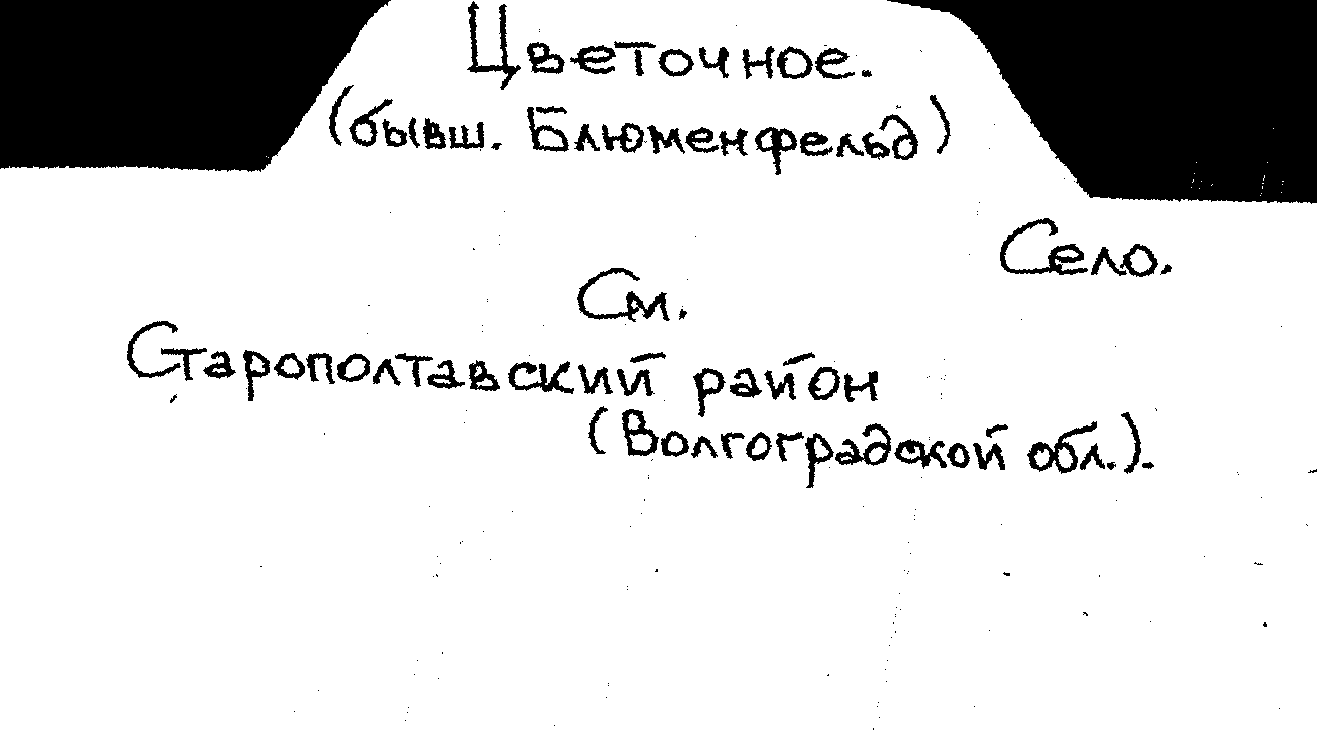 Цветочное.
(бывш. Блюменфельд)
Село.
См.
Старополтавский район
(Волгоградской обл.).